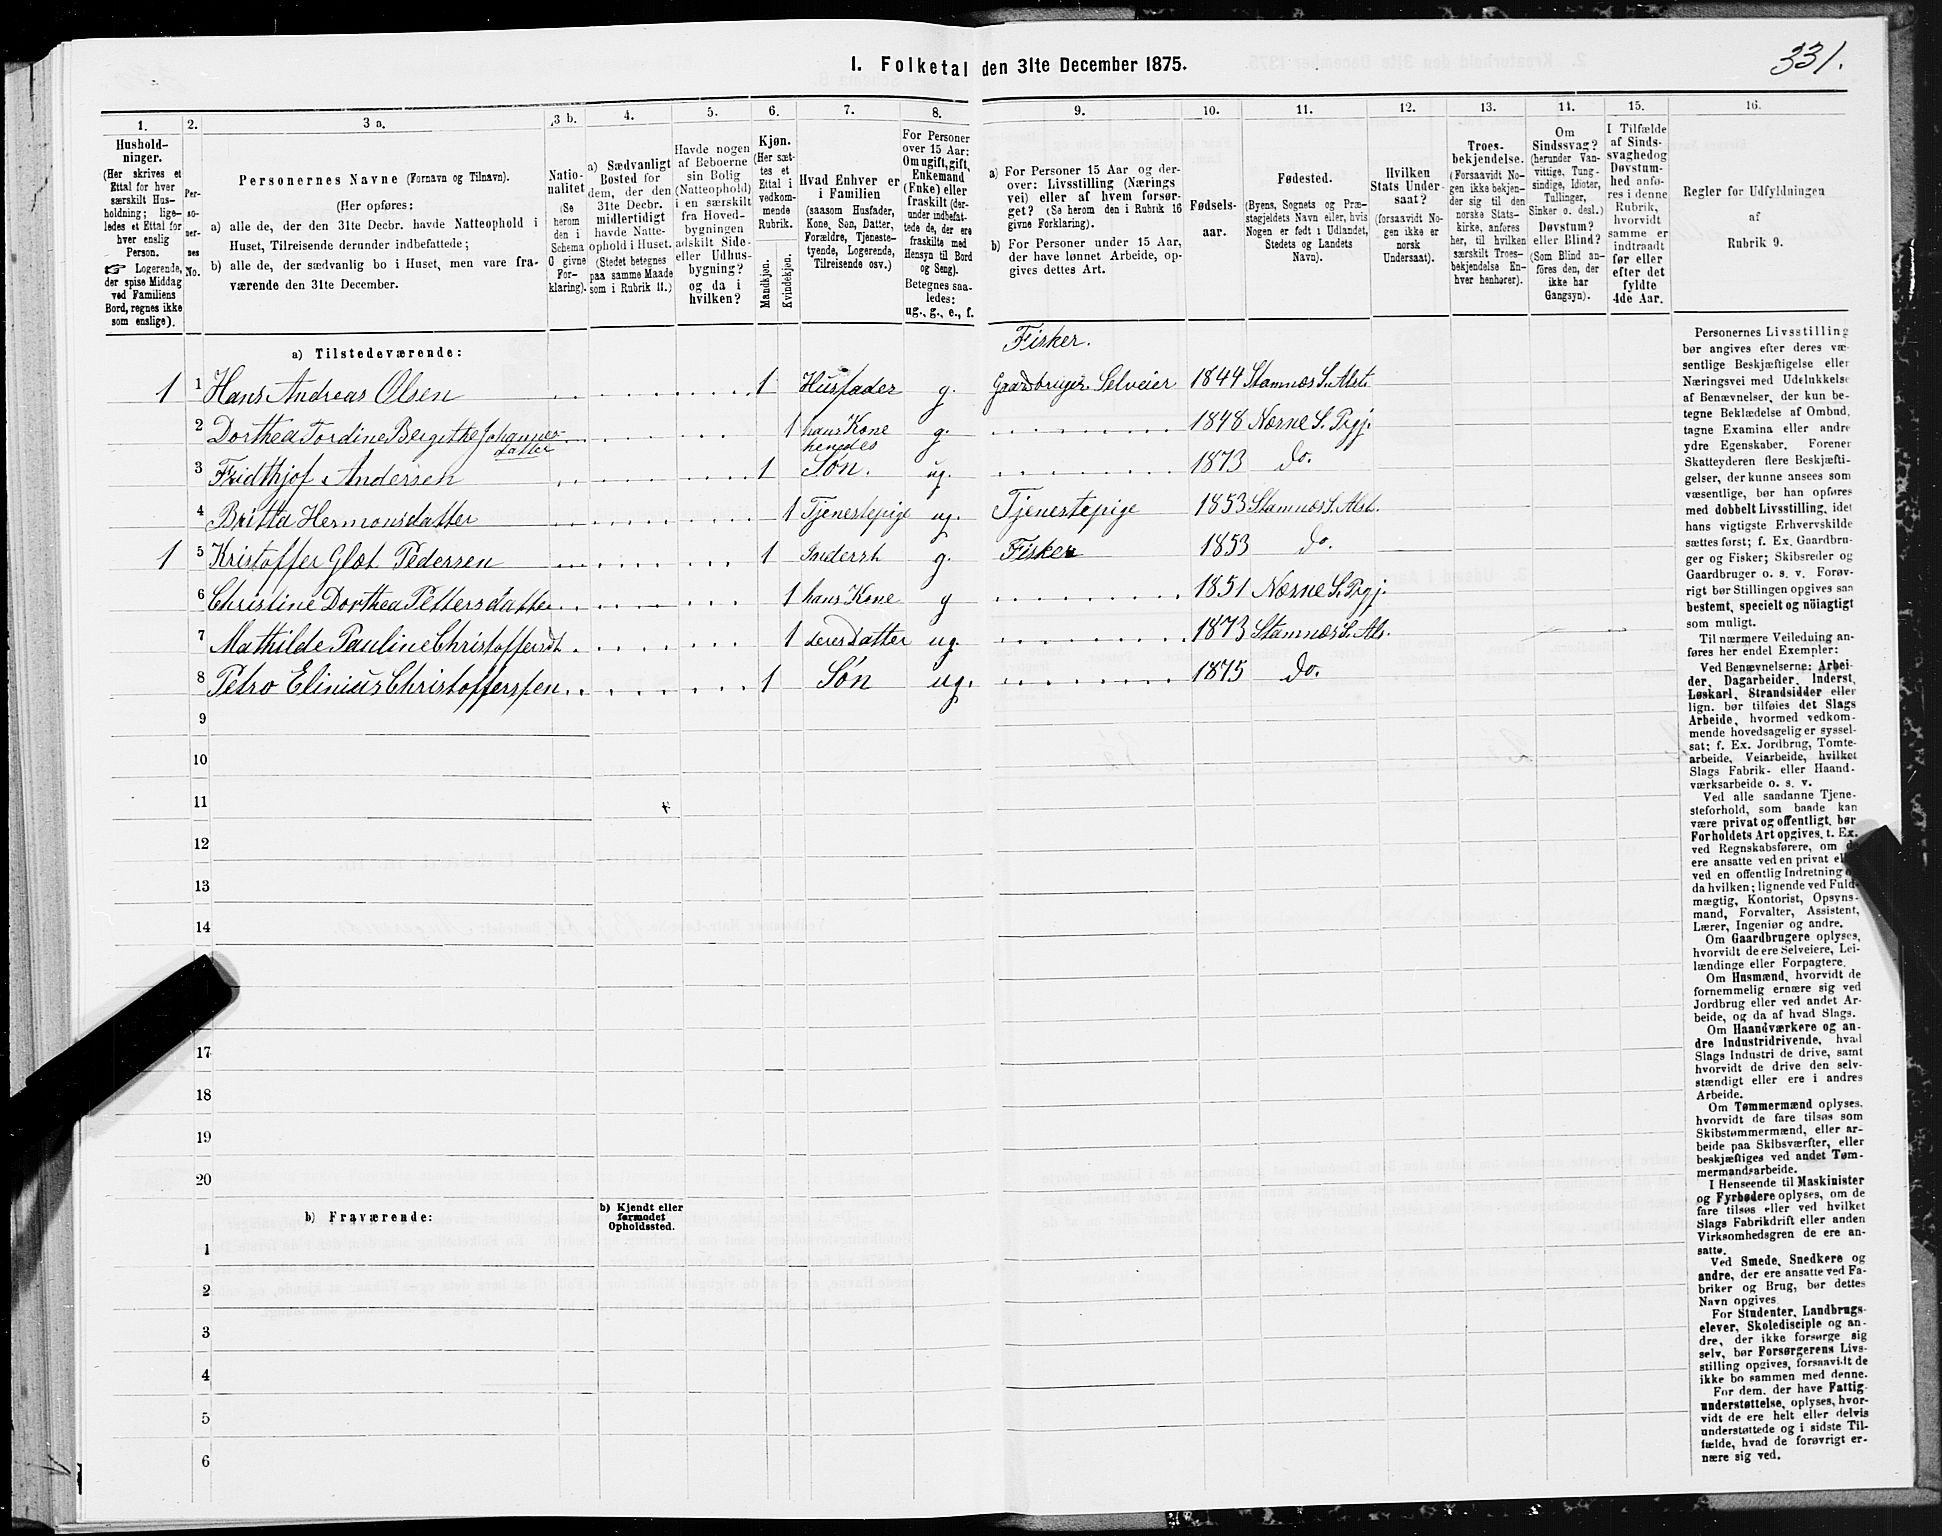 331.
1. Folketal den 31te December 1875.
1. 2. 3 a. 3 b. 4. 5. 6. 7. 8. 9. 10. 11. 12. 13. 14. 15. 16.
Hushold-
ninger.
(Her skrives et
Ettal for hver
særskilt Hus-
holdning; lige-
ledes et Ettal for
hver enslig
Person.
☞ Logerende,
der spise Middag
ved Familiens
Bord, regnes ikke
som enslige).
Per-
so-
ner-
nes
No.
Personernes Navne (Fornavn og Tilnavn).
(Her opføres:
a) alle de, der den 31te Decbr. havde Natteophold i
Huset, Tilreisende derunder indbefattede;
b) alle de, der sædvanlig bo i Huset, men vare fra-
værende den 31te December.
Natio-
nalitet
(Se
herom
den i
Schema
C givne
For-
klaring).
a) Sædvanligt
Bosted for
dem, der den
31te Decbr.
midlertidigt
havde Natte-
ophold i Huset.
(Stedet betegnes
paa samme Maade
som i Rubrik 11.)
Havde nogen
af Beboerne
sin Bolig
(Natteophold)
i en særskilt
fra Hoved-
bygningen
adskilt Side-
eller Udhus-
bygning?
og da i
hvilken?
Kjøn.
(Her sæt-
tes et
Ettal i
vedkom-
mende
Rubrik.
Mandkjøn.
Kvindekjøn.
Hvad Enhver er
i Familien
(saasom Husfader,
Kone, Søn, Datter,
Forældre, Tjeneste-
tyende, Logerende,
Tilreisende osv.)
For Personer
over 15 Aar:
Om ugift, gift,
Enkemand
(Enke) eller
fraskilt (der-
under indbefat-
tede de, der ere
fraskilte med
Hensyn til Bord
og Seng).
Betegnes saa-
ledes:
ug., g., e., f.
a) For Personer 15 Aar og der-
over: Livsstilling (Nærings
vei) eller af hvem forsør-
get? (Se herom den i Rubrik 16
givne Forklaring).
b) For Personer under 15 Aar,
der have lønnet Arbeide, op-
gives dettes Art.
Fødsels-
aar.
Fødested.
(Byens, Sognets og Præ-
stegjeldets Navn eller, hvis
Nogen er født i Udlandet,
Stedets og Landets
Navn).
Hvilken
Stats Under-
saat?
(forsaavidt No-
gen ikke er
norsk
Undersaat).
Troes-
bekjendelse.
(Forsaavidt No-
gen ikke bekjen-
der sig til den
norske Stats-
kirke, anføres
her, til hvilken
særskilt Troes-
bekjendelse En-
hver henhører).
Om
Sindssvag?
(herunder Van-
vittige, Tung-
sindige, Idioter,
Tullinger,
Sinker o. desl.)
Døvstum?
eller Blind?
(Som Blind an-
føres den, der
ikke har
Gangsyn).
I Tilfælde
af Sinds-
svaghed og
Døvstum-
hed anfø-
res i denne
Rubrik,
hvorvidt
samme er
indtraadt
før eller
efter det
fyldte
4de Aar.
Regler for Udfyldningen
af
Rubrik 9.
a) Tilstedeværende:
Fisker.
1 1 Hans Andreas Olsen 1 Husfader g. Gaardbruger Selveier 1844 Stamnæs S. Alst.
2 Dorthea Tordine Bergithe Johannes- 1 hans Kone g. 1848 Næsne S. Prgj.
datter hendes
3 Fridthjof Andersen 1 Søn. ug. 1873 do.
4 Britta Hermonsdatter 1 Tjenestepige ug. Tjenestepige 1853 Stamnæs S. Alst.
1 5 Kristoffer Glæt Pedersen 1 Inderst g. Fisker 1853 do.
6 Christine Dorthea Pettersdatter 1 hans Kone g 1851 Næsne S. Prgj.
7 Mathilde Pauline Christoffersdt. 1 deres Datter ug. 1873 Stamnæs S. Als.
8 Petro Elinius Christofferssen 1 Søn ug. 1875 do.
9
10
11
12
13
14
17
18
19
20
b) Fraværende:
b) Kjendt eller
formodet
Opholdssted.
1
2
3
4
5
6
Personernes Livsstilling
bør angives efter deres væ-
sentlige Beskjæftigelse eller
Næringsvei med Udelukkelse
af Benævnelser, der kun be-
tegne Beklædelse af Ombud,
tagne Examina eller andre
ydre Egenskaber. Forener
Skatteyderen flere Beskjæfti-
gelser, der kunne ansees som
væsentlige, bør han opføres
med dobbelt Livsstilling, idet
hans vigtigste Erhvervskilde
sættes først; f. Ex. Gaardbru-
ger og Fisker; Skibsreder og
Gaardbruger o. s. v. Forøv-
rigt bør Stillingen opgives saa
bestemt, specielt og nöiagtigt
som muligt.
Til nærmere Veiledning an-
føres her endel Exempler:
Ved Benævnelserne: Arbei-
der, Dagarbeider, Inderst,
Løskarl, Strandsidder eller
lign. bør tilføies det Slags
Arbeide, hvormed vedkom-
mende hovedsagelig er syssel-
sat; f. Ex. Jordbrug, Tomte-
arbeide, Veiarbeide, hvilket
Slags Fabrik- eller Haand-
værksarbeide o. s. v.
Ved alle saadanne Tjene-
steforhold, som baade kan
være privat og offentligt, bør
Forholdets Art opgives, t. Ex.
ved Regnskabsførere, om de
ere ansatte ved en privat el
ved en offentlig Indretning
da hvilken; lignende ved Fuld-
mægtig, Kontorist, Opsyns-
mand, Forvalter, Assistent,
Lærer, Ingeniør og andre.
Om Gaardbrugere oplyses,
hvorvidt de ere Selveiere, Lei-
lændinge eller Forpagtere.
Om Husmænd, hvorvidt de
fornemmelig ernære sig ved
Jordbrug eller ved andet Ar-
beide, og da af hvad Slags.
Om Haandværkere og an-
dre Industridrivende, hvad
Slags Industri de drive, samt
hvorvidt de drive den selv-
stændigt eller ere i andres
Arbeide.
Om Tømmermænd oplyses,
hvorvidt de fare tilsøs som
Skibstømmermænd, eller ar-
beide paa Skibsværfter, eller
beskjæftiges ved andet Tøm-
mermandsarbeide.
I Henseende til Maskinister
og Fyrbødere oplyses, om de
fare tilsøs eller ved hvilket
Slags Fabrikdrift eller anden
Virksomhedsgren de ere an-
satte.
Ved Smede, Snedkere og
andre, der ere ansatte ved Fa-
briker og Brug, bør dettes
Navn opgives
For Studenter, Landbrugs-
elever, Skoledisciple og an-
dre, der ikke forsørge sig
selv, bør Forsørgerens Livs-
stilling opgives, forsaavidt de
ikke bo sammen med denne.
For dem, der have Fattig-
understøttelse, oplyses, hvor-
vidt de ere helt eller delvis
understøttede og i sidste Til-
fælde, hvad de forøvrigt er-
nære sig ved.